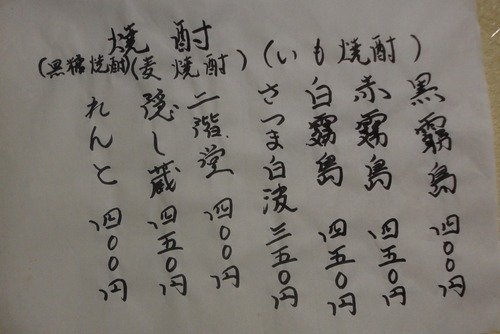 焼酎
(いも焼酎)
黒霧島 四〇〇円
赤霧島 四五〇円
白霧島 四五〇円
さつま白波 三五〇円
(麦焼酎)
二階堂 四〇〇円
隠し蔵 四五〇円
(黒糖焼酎)
れんと 四〇〇円